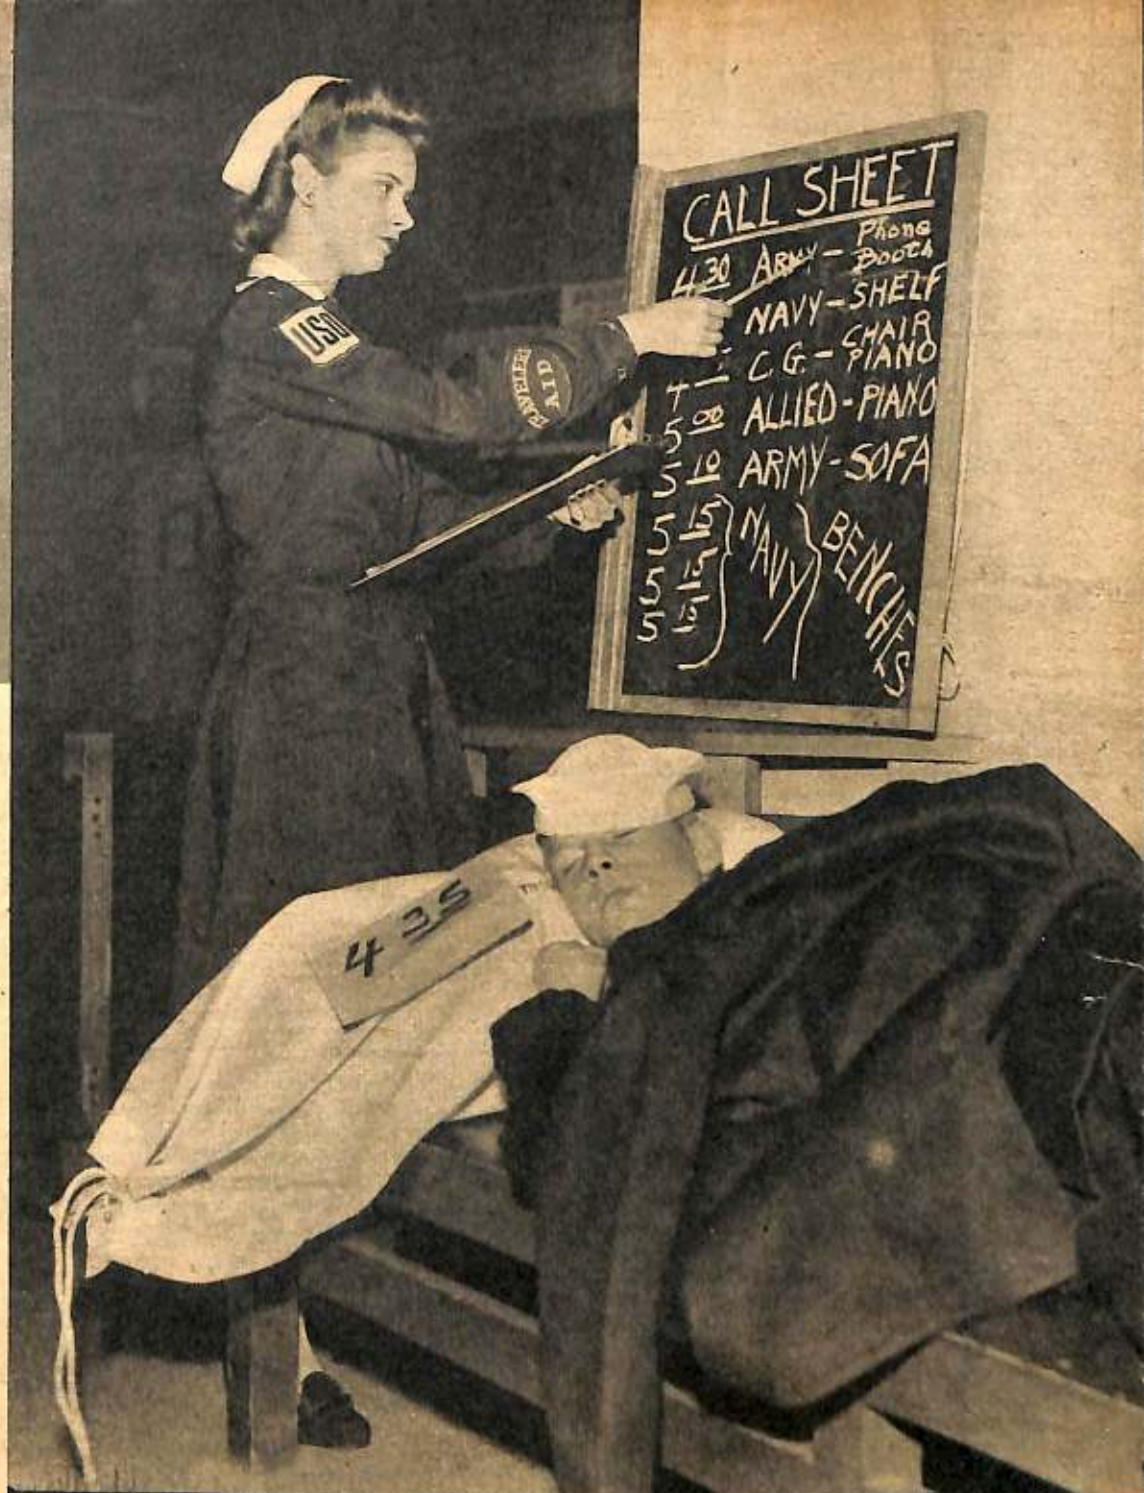 USO
TRAVELERS
AID
CALL SHEET
4 30 ARMY - Phone Booth
NAVY - SHELF
C.G. - CHAIR PIANO
5 00 ALLIED - PIANO
5 10 ARMY - SOFA
5 15 } NAVY } BENCHES
5 15
5
435